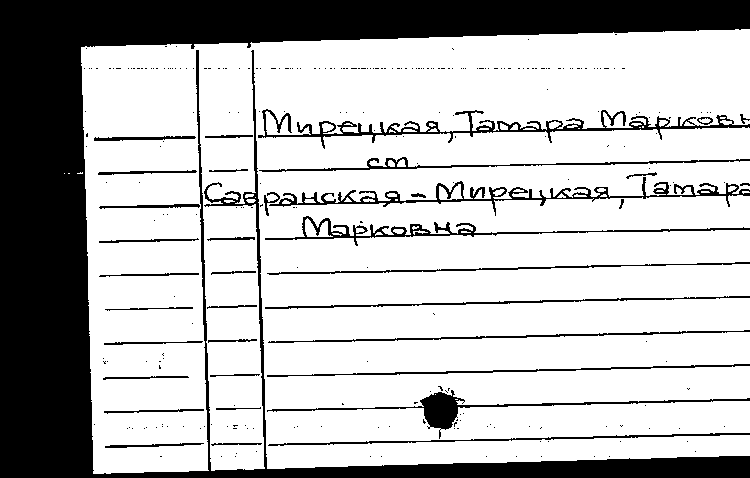 Мирецкая, Тамара Марковн
ст.
Савранская - Мирецкая, Тамара
Марковна